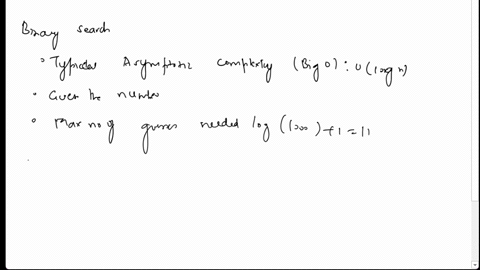 Binary search
• Typical Asymptotic complexity (Big O) : O(log n)
• Guess the number
• Max no of guesses needed log (1000) + 1 = 11